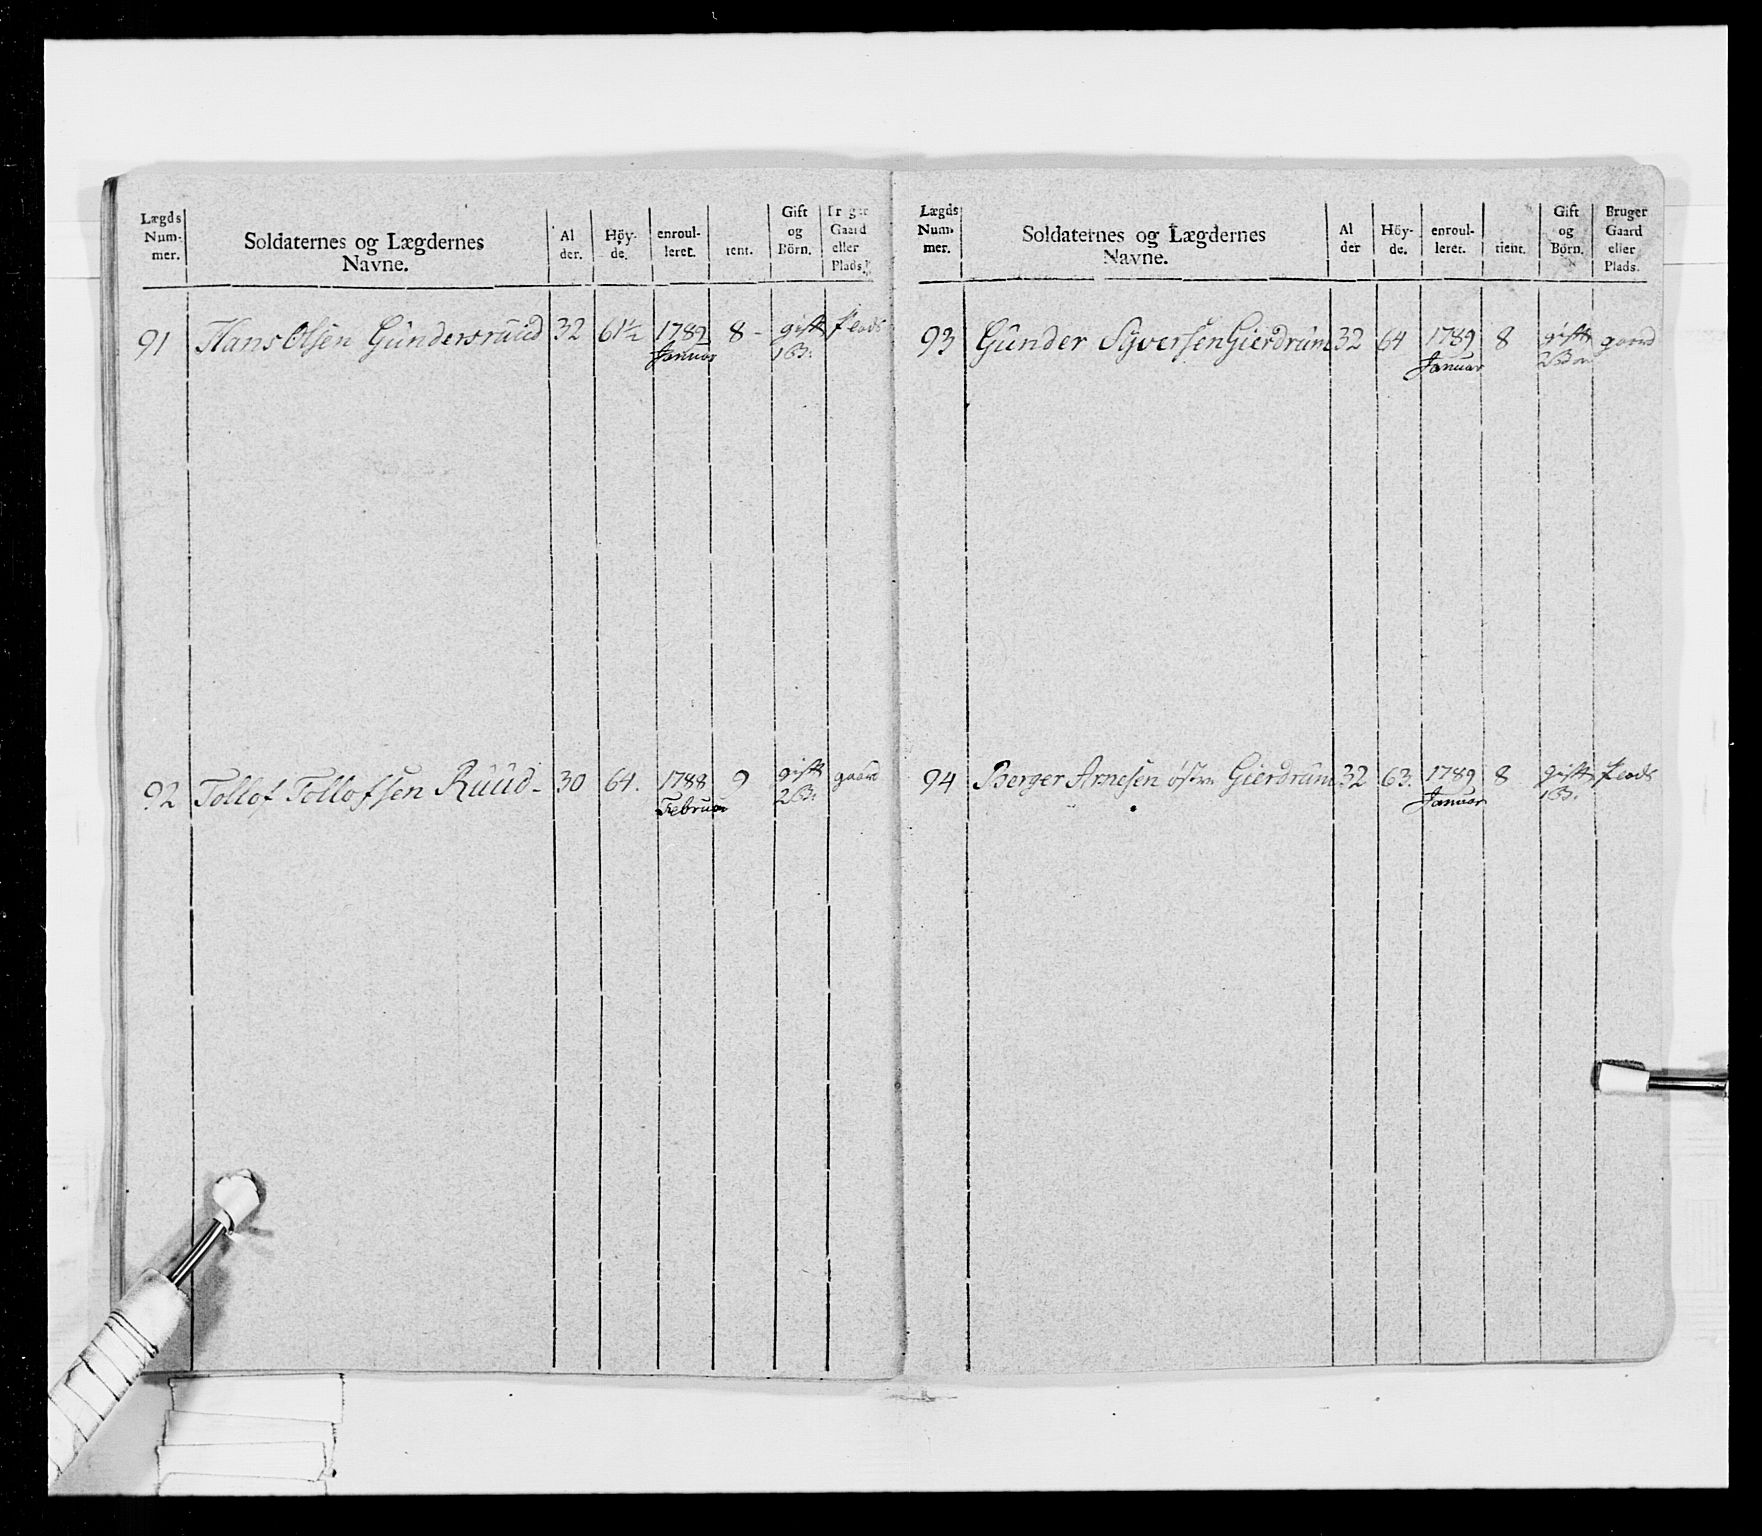 Lægds Num- mer. Soldaternes og Lægdernes Navne. Al der. Höy- de. enroul- leret. tient. Gift og Börn. Bruger Gaard eller Plads.
91 Hans Olsen Gundersruud 32 61½ 1789 8 - gift plads
Januar 1 B:
92 Tollof Tollofsen Ruud - 30 64. 1788 9 gift gaard
Februar 2 B:
Lægds Num- mer. Soldaternes og Lægdernes Navne. Al der Höy- de. enroul- leret. tient. Gift og Börn. Bruger Gaard eller Plads.
93 Gunder Syversen Gierdrum 32 64 1789 8 gift gaard
Januar 2 Börn
94 Berger Arnesen östre Gierdrum 32 63. 1789 8 gift plads
Januar 1 B: